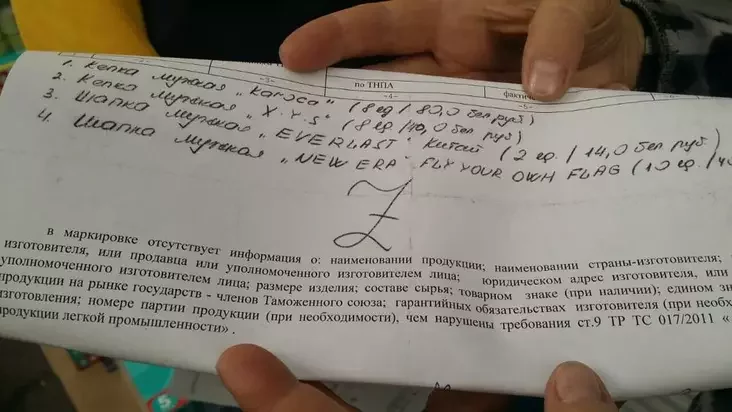 по ТНПА
-3-
-4-
-5-
1. Кепка мужская „Капоsа“ (8 ед / 80,0 бел.руб)
2. Кепка мужская „X.Y.S“ (8 ед / 40,0 бел руб)
3. Шапка мужская „EVERLAST“ Китай (2 ед. / 14,0 бел. руб.
4. Шапка мужская „NEW ERA“ FLY YOUR OWN FLAG (10 ед. /
Z
в маркировке отсутствует информация о: наименовании продукции; наименовании страны-изготовителя;
изготовителя, или продавца или уполномоченного изготовителем лица; юридическом адресе изготовителя, или
уполномоченного изготовителем лица; размере изделия; составе сырья; товарном знаке (при наличии); едином
продукции на рынке государств - членов Таможенного союза; гарантийных обязательствах изготовителя (при
изготовления; номере партии продукции (при необходимости), чем нарушены требования ст.9 ТР ТС 017/2011 «
продукции легкой промышленности» .